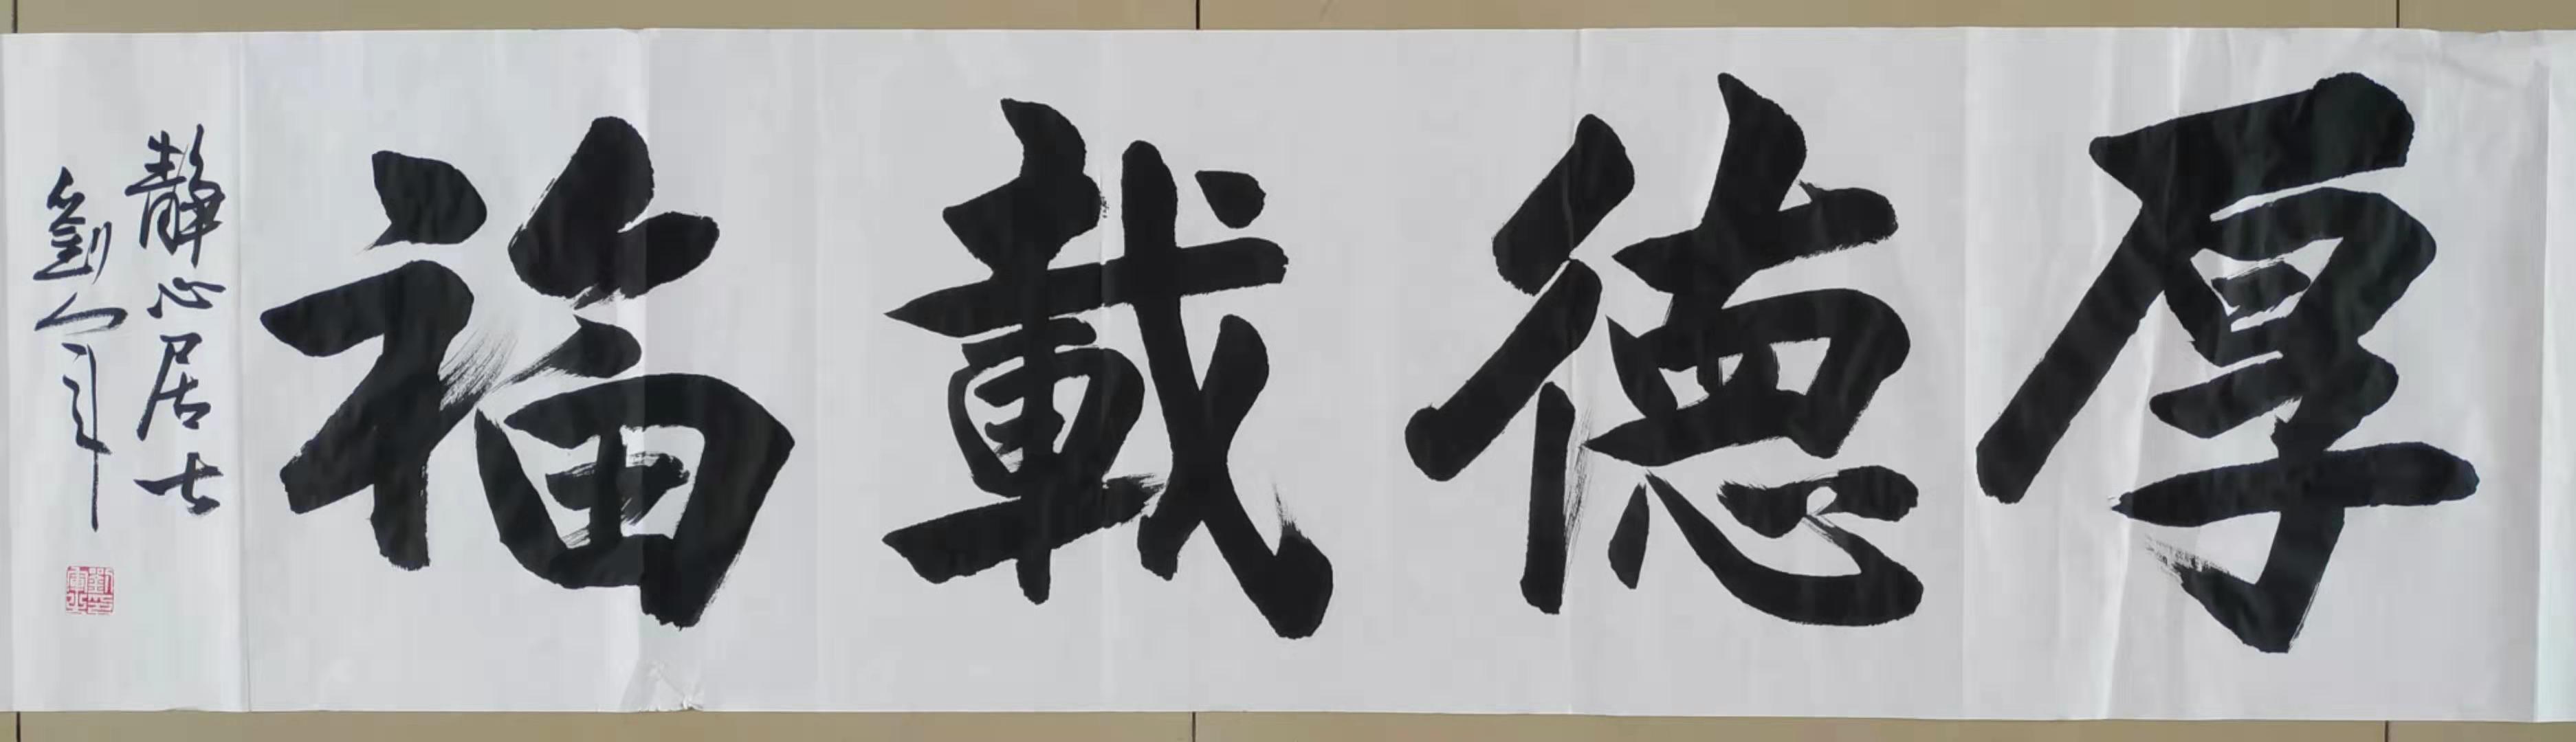 厚德載福
靜心居士
劉